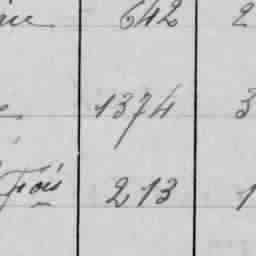 642 2
1374 3
Fois 213 1